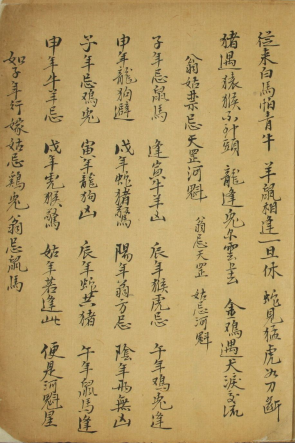 從來白馬怕青牛 羊鼠相逢一旦休 蛇見猛虎如刀斷
猪遇猿猴不到頭 龍逢兔 雲去 金鷄遇犬淚交流
翁姑禁忌天罡河魁 翁忌天罡 姑忌河魁
子年忌鼠馬 逢寅牛羊凶 辰年猴虎忌 午年鷄兔逢
申年龍狗避 戌年蛇猪驚 陽年翁方忌 陰年 無凶
子年忌鷄兔 寅年龍狗凶 辰年蛇共猪 午年鼠馬逢
申年牛羊忌 戌年虎猴驚 姑年若逢此 便是河魁星
如子年行嫁姑忌鷄兔翁忌鼠馬